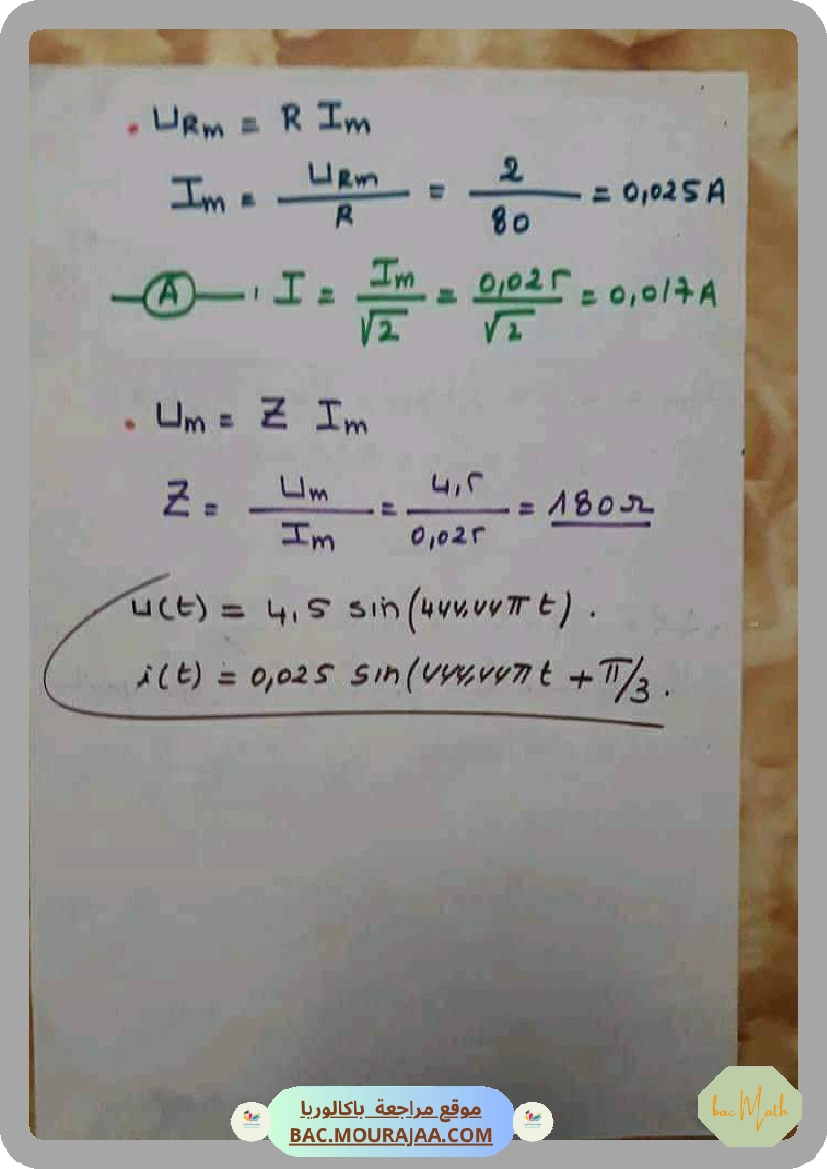 . URm = R Im
Im = URm / R = 2 / 80 = 0,025 A
A , I = Im / √2 = 0,025 / √2 = 0,017 A
. Um = Z Im
Z = Um / Im = 4,5 / 0,025 = 180 Ω
u(t) = 4,5 sin(444,44π t) .
i(t) = 0,025 sin(444,44π t + π/3 .
موقع مراجعة باكالوريا
BAC.MOURAJAA.COM
bac Math